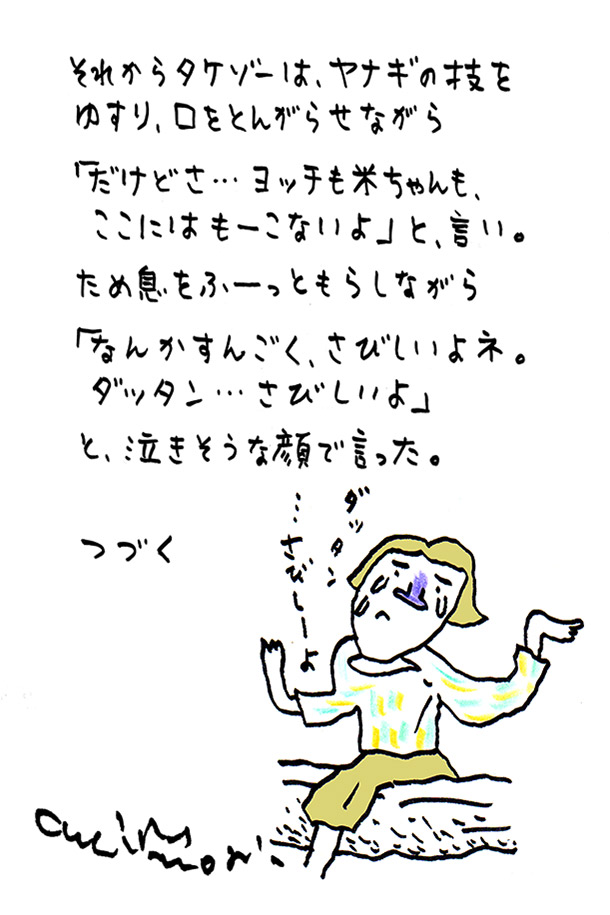 それからタケゾーは、ヤナギの技を
ゆすり、口をとんがらせながら
「だけどさ…ヨッチも米ちゃんも、
ここにはもーこないよ」と、言い。
ため息をふーっともらしながら
「なんかすんごく、さびしいよネ。
ダッタン…さびしいよ」
と、泣きそうな顔で言った。
つづく
ダッタン
…さびしーよ